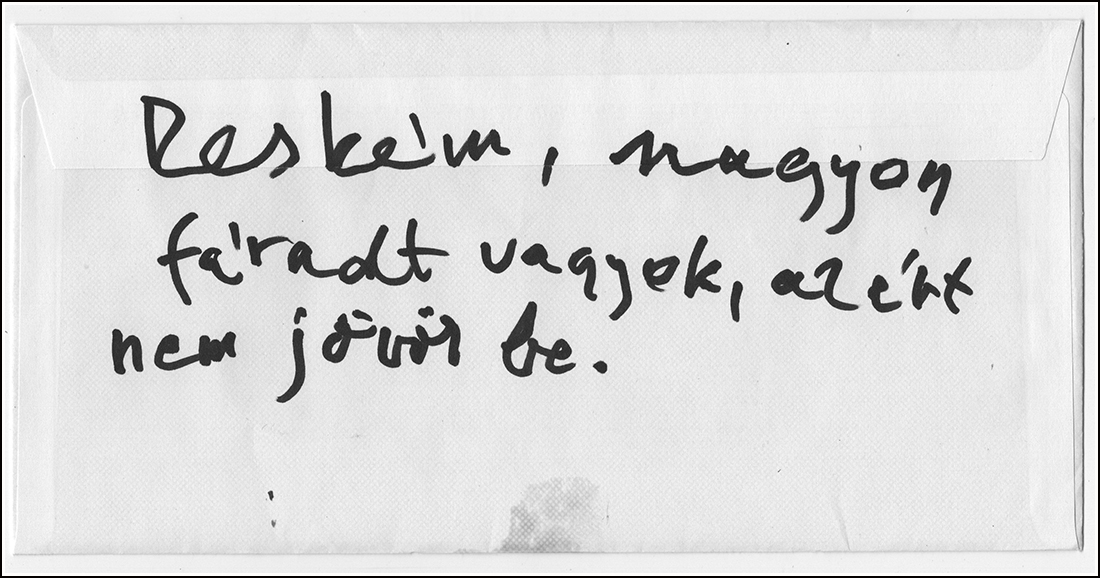 Deském, nagyon
fáradt vagyok, azért
nem jövök be.